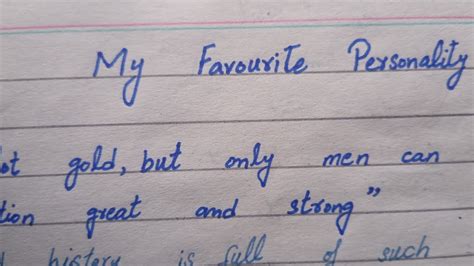 My Favourite Personality
ot gold, but only men can
tion great and strong"
history is full of such